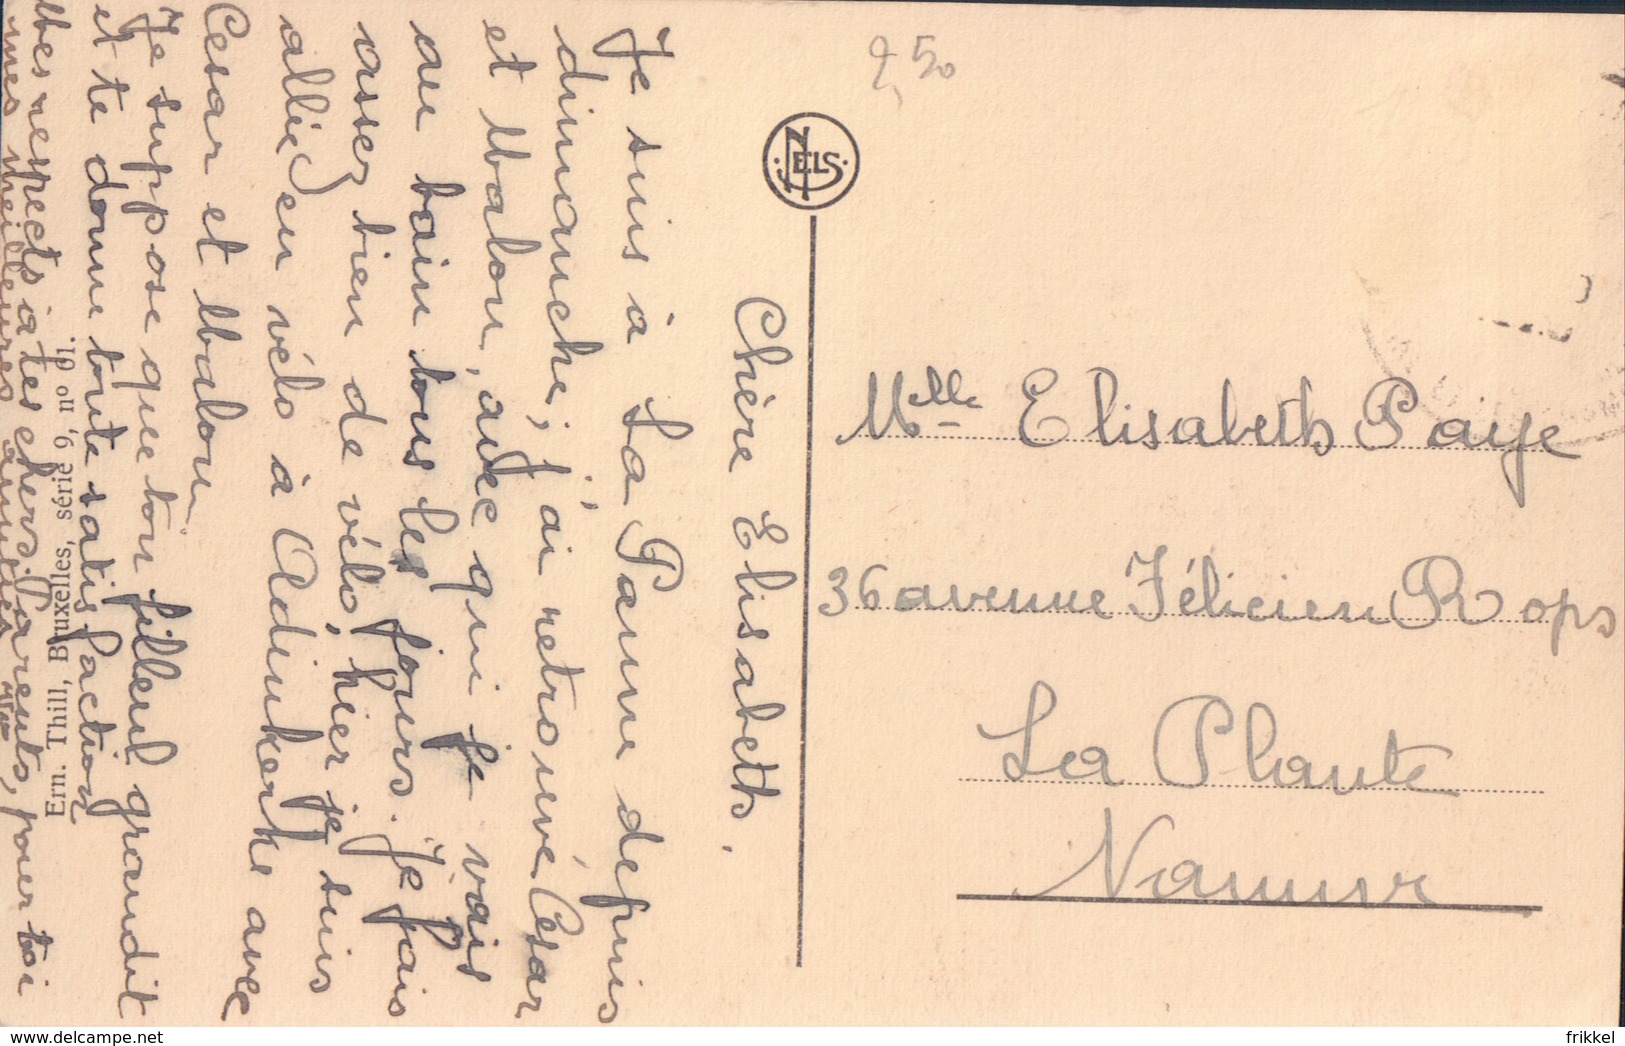 Chère Elisabeth,
Je suis à La Panne depuis
dimanche; j'ai retrouvé Cesar
et Mbalou, avec qui je vais
au bain tous les jours. Je fais
assez bien de vélo, hier je suis
allié en vélo à Adinkerke avec
Cesar et Mbalou.
Je suppose que ton filleul grandit
et te donne toute satisfaction
Mes respects à tes chers Parents, pour toi
mes meilleures amitiés
Ern. Thill, Bruxelles, série 9, no 61.
2,50
NELS
Mlle Elisabeth Paije
36 avenue Félicien Rops
La Plante
Namur
frikkel